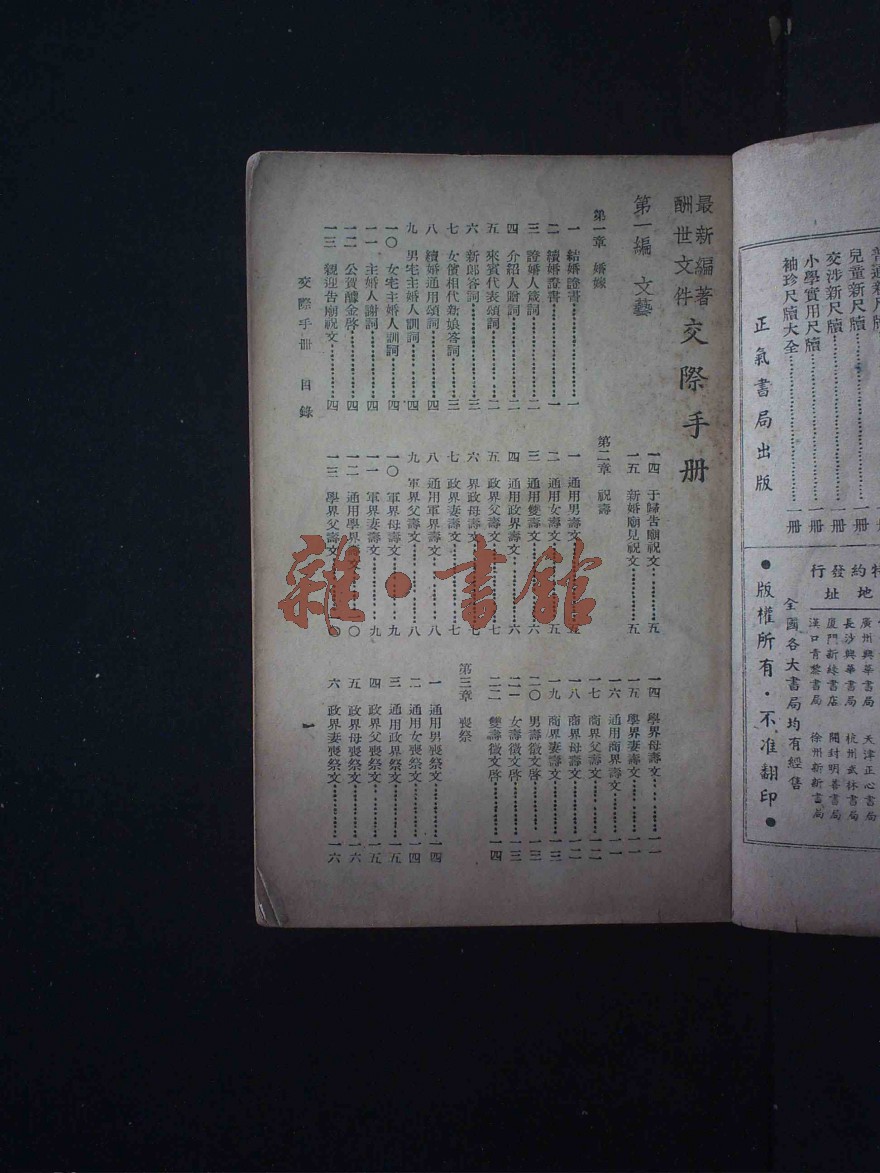 兒童新尺牘…………一冊
交涉新尺牘…………一冊
小學實用尺牘…………一冊
袖珍尺牘大全…………一冊
正氣書局出版
特約發行
地址
廣州興華書局
長沙興華書局
廈門新綠書店
漢口青黎書局
天津正心書局
杭州武林書局
開封明善書局
徐州新新書局
全國各大書局均有經售
●版權所有·不准翻印●
最新編著
酬世文件
交際手冊
第一編 文藝
第一章 婚嫁
一 結婚證書…………一
二 續婚證書…………一
三 證婚人箴詞…………二
四 介紹人贈詞…………二
五 來賓代表頌詞…………二
六 新郎答詞…………三
七 女儐相代新娘答詞…………三
八 續婚通用頌詞…………四
九 男宅主婚人訓詞…………四
一〇 女宅主婚人訓詞…………四
一一 主婚人謝詞…………四
一二 公賀醵金啓…………四
一三 親迎告廟祝文…………四
一四 于歸告廟祝文…………五
一五 新婚廟見祝文…………五
第二章 祝壽
一 通用男壽文…………五
二 通用女壽文…………五
三 通用雙壽文…………六
四 通用政界壽文…………六
五 政界父壽文…………七
六 界政母壽文…………七
七 政界妻壽文…………七
八 通用軍界壽文…………八
九 軍界父壽文…………八
一〇 軍界母壽文…………九
一一 軍界妻壽文…………九
一二 通用學界壽文…………一〇
一三 學界父壽文…………一〇
一四 學界母壽文…………一一
一五 學界妻壽文…………一一
一六 通用商界壽文…………一一
一七 商界父壽文…………一二
一八 商界母壽文…………一二
一九 商界妻壽文…………一三
二〇 男壽徵文啓…………一三
二一 女壽徵文啓…………一三
二二 雙壽徵文啓…………一四
第三章 喪祭
一 通用男喪祭文…………一四
二 通用女喪祭文…………一四
三 通用政界祭文…………一五
四 政界父喪祭文…………一五
五 政界母喪祭文…………一六
六 政界妻喪祭文…………一六
交際手冊 目錄
一
雜·書館